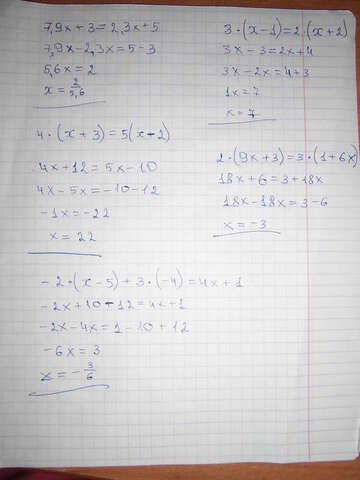 7,9x + 3 = 2,3x + 5
7,9x - 2,3x = 5 - 3
5,6x = 2
x = 2/5,6
4 · (x + 3) = 5(x - 2)
4x + 12 = 5x - 10
4x - 5x = -10 - 12
-1x = -22
x = 22
-2 · (x - 5) + 3 · (-4) = 4x + 1
-2x + 10 - 12 = 4x + 1
-2x - 4x = 1 - 10 + 12
-6x = 3
x = -3/6
3 · (x - 1) = 2 · (x + 2)
3x - 3 = 2x + 4
3x - 2x = 4 + 3
1x = 7
x = 7
2 · (9x + 3) = 3 · (1 + 6x)
18x + 6 = 3 + 18x
18x - 18x = 3 - 6
x = -3